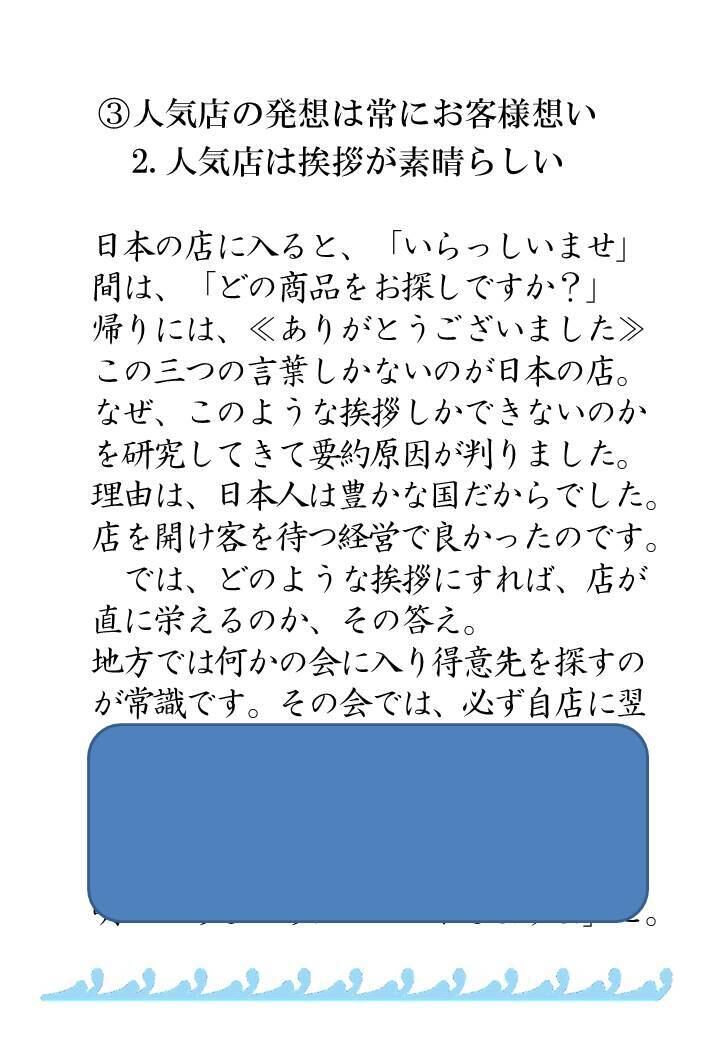 ③人気店の発想は常にお客様想い
2. 人気店は挨拶が素晴らしい
日本の店に入ると、「いらっしいませ」
間は、「どの商品をお探しですか？」
帰りには、≪ありがとうございました≫
この三つの言葉しかないのが日本の店。
なぜ、このような挨拶しかできないのか
を研究してきて要約原因が判りました。
理由は、日本人は豊かな国だからでした。
店を開け客を待つ経営で良かったのです。
では、どのような挨拶にすれば、店が
直に栄えるのか、その答え。
地方では何かの会に入り得意先を探すの
が常識です。その会では、必ず自店に翌